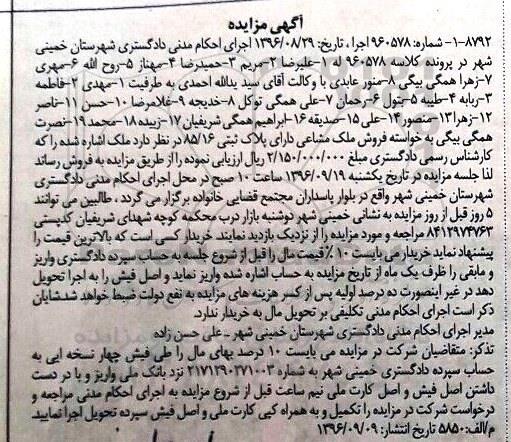 آگهی مزایده
۱-۸۷۹۲- شماره: ۹۶۰۵۷۸ اجرا ، تاریخ: ۱۳۹۶/۰۸/۲۹ اجرای احکام مدنی دادگستری شهرستان خمینی
شهر در پرونده کلاسه ۹۶۰۵۷۸ له ۱-علیرضا ۲-مریم ۳-حمیدرضا ۴-مهناز ۵-روح الله ۶-مهری
۷-زهرا همگی بیگی ۸-منور عابدی با وکالت آقای سید یدالله احمدی به طرفیت ۱-مهدی ۲-فاطمه
۳-ربابه ۴-طیبه ۵-بتول ۶-رحمان ۷-علی همگی توکل ۸-خدیجه ۹-غلامرضا ۱۰-حسن ۱۱-ناصر
۱۲-زهرا ۱۳-منصور ۱۴-علی ۱۵-صدیقه ۱۶-ابراهیم همگی شریفیان ۱۷-زبیده ۱۸-محمد ۱۹-نصرت
همگی بیگی به خواسته فروش ملک مشاعی دارای پلاک ثبتی ۸۵/۱۶ در نظر دارد ملک اشاره شده را که
کارشناس رسمی دادگستری مبلغ ۲/۱۵۰/۰۰۰/۰۰۰ ریال ارزیابی نموده را از طریق مزایده به فروش رساند
لذا جلسه مزایده در تاریخ یکشنبه ۱۳۹۶/۰۹/۱۹ ساعت ۱۰ صبح در محل اجرای احکام مدنی دادگستری
شهرستان خمینی شهر واقع در بلوار پاسداران مجتمع قضایی خانواده برگزار می گردد ، طالبین می توانند
۵ روز قبل از روز مزایده به نشانی خمینی شهر دوشنبه بازار درب محکمه کوچه شهدای شریفیان کدپستی
۸۴۱۲۹۷۴۷۶۳ مراجعه و مورد مزایده را از نزدیک بازدید نمایند خریدار کسی است که بالاترین قیمت را
پیشنهاد نماید خریدار می بایست ۱۰ ٪ قیمت مال را قبل از شروع جلسه به حساب سپرده دادگستری واریز
و مابقی را ظرف یک ماه از تاریخ مزایده به حساب اشاره شده واریز نماید و اصل فیش را به اجرا تحویل
دهد در غیر اینصورت ده درصد اولیه پس از کسر هزینه های مزایده به نفع دولت ضبط خواهد شد.شایان
ذکر است اجرای احکام مدنی تکلیفی بر تحویل مال به خریدار ندارد.
مدیر اجرای احکام مدنی دادگستری شهرستان خمینی شهر - علی حسن زاده
تذکر: متقاضیان شرکت در مزایده می بایست ۱۰ درصد بهای مال را طی فیش چهار نسخه ایی به
حساب سپرده دادگستری خمینی شهر به شماره ۲۱۷۱۲۹۰۲۷۱۰۰۳ نزد بانک ملی واریز و با در دست
داشتن اصل فیش و اصل کارت ملی نیم ساعت قبل از شروع مزایده به اجرای احکام مدنی مراجعه و
درخواست شرکت در مزایده را تکمیل و به همراه کپی کارت ملی و اصل فیش سپرده تحویل اجرا نمایید.
م/الف: ۵۸۵۰ تاریخ انتشار: ۱۳۹۶/۰۹/۰۹